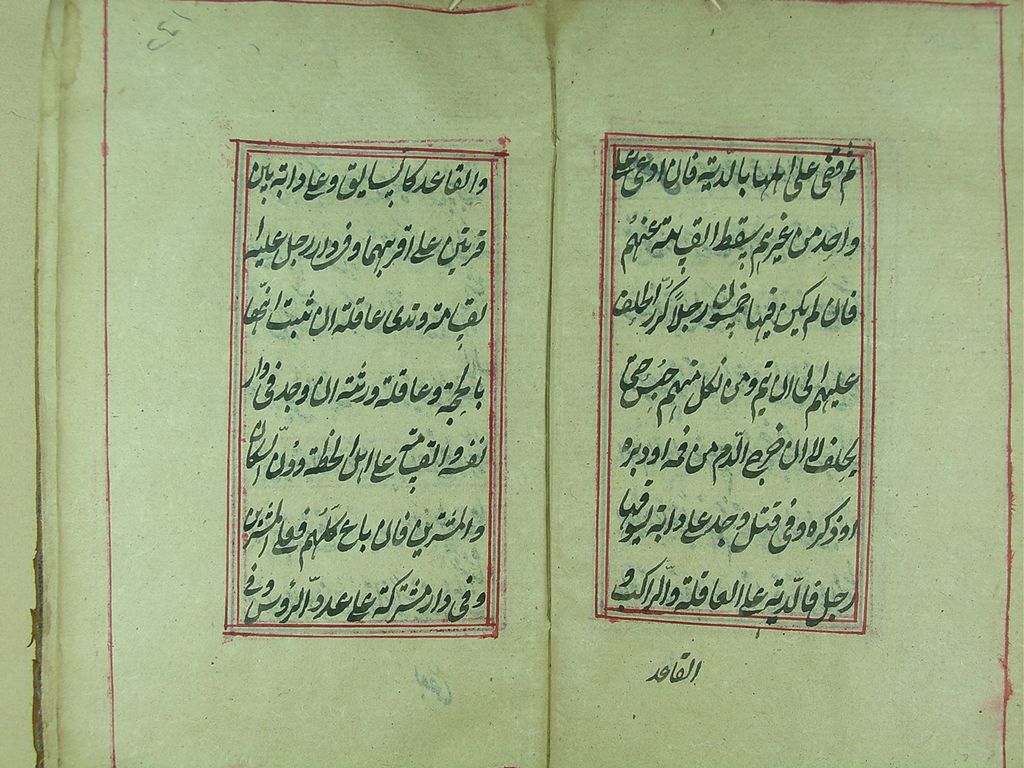 ثم قضى على اهلها بالدّية فان ادعى على
واحد من غيرهم يسقط القسامة عنهم
فان لم يكن فيها خمسون رجلاً كرّر الحلف
عليهم الى ان يتم ومن نكل منهم حبس حتى
يحلف لا ان خرج الدّم من فمه او دبره
او ذكره وفى قتيل وجد على دابة يسوقها
رجل فالدّية على العاقلة والرّاكب و
القاعد
والقاعد كالسايق وعلى دابة بين
قريتين على اقربهما وفى دار رجل عليه ا
لقسامة وتدى عاقلته ان ثبت انّها
بالحجة وعاقلة ورثته ان وجد فى دار
نفسه والقسامة على اهل الخطة دون السّكان
والمشترين فان باع كلّهم فعلى المشترين
وفى دار مشتركة على عدد الرّؤس وفى